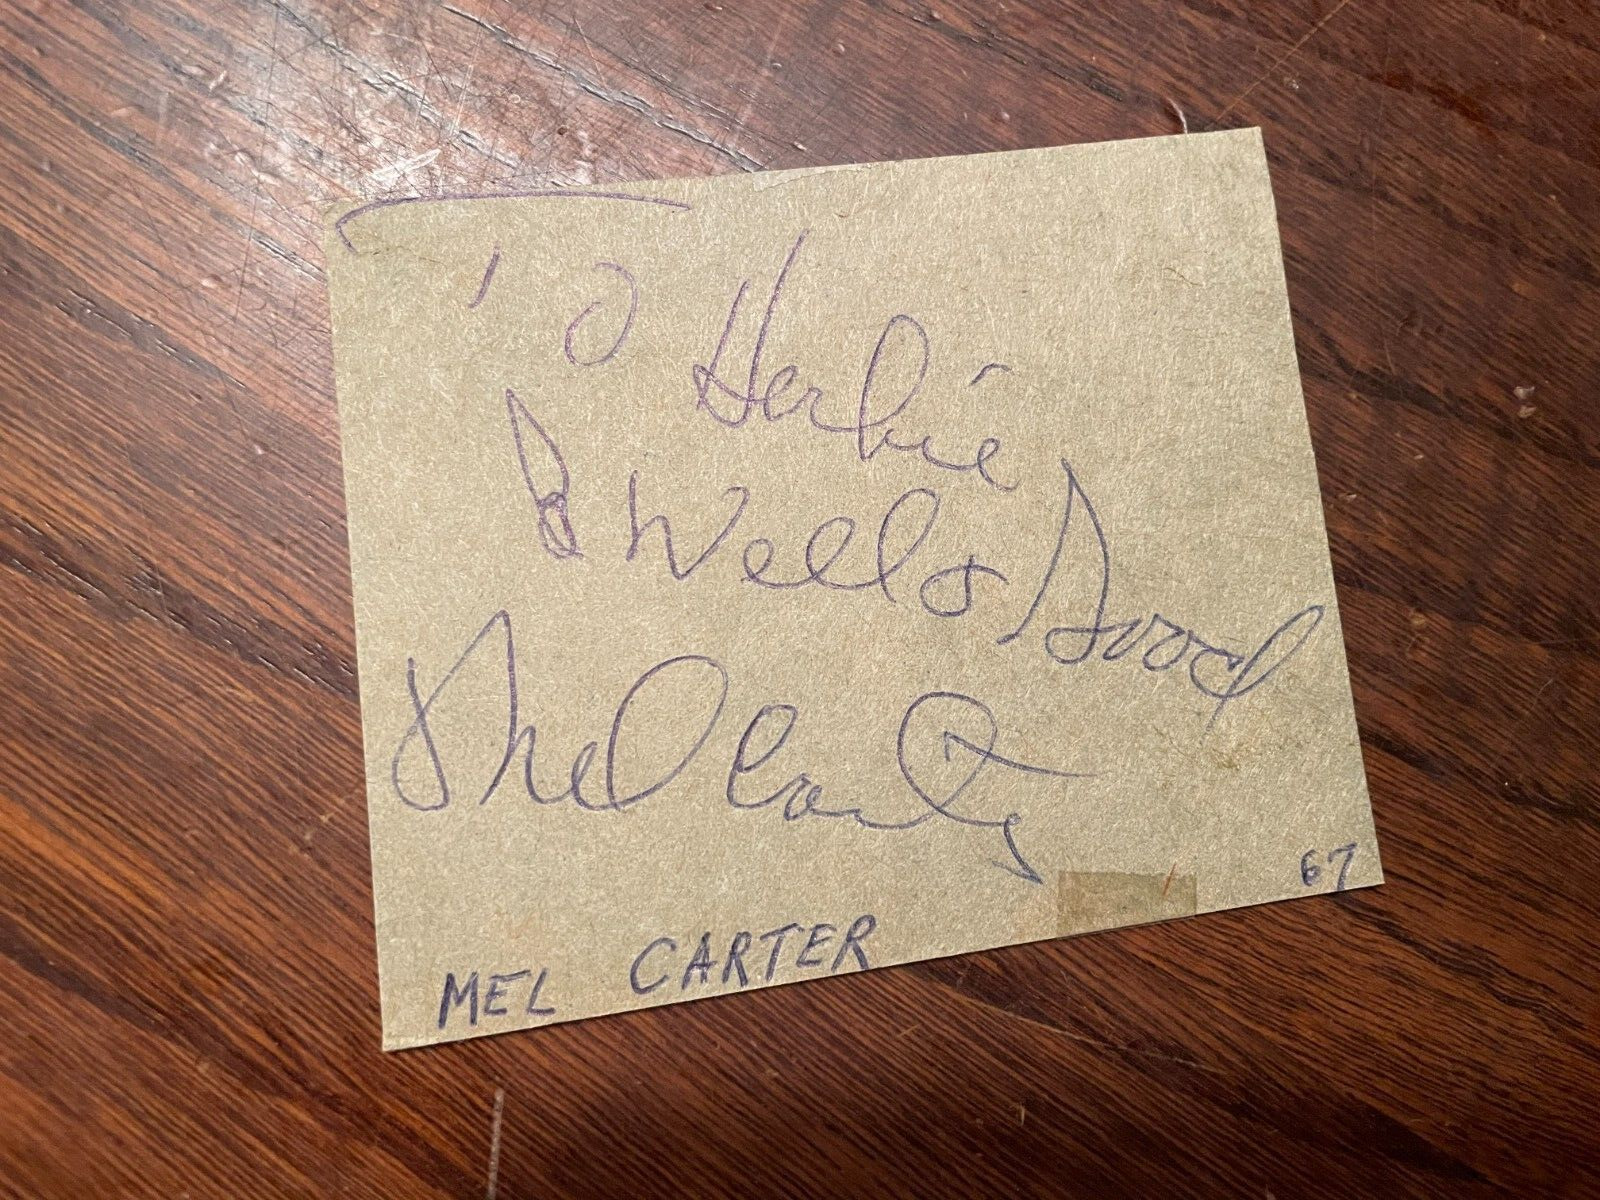 To Herbie
B Well & Good
Mel Carter
67
MEL CARTER